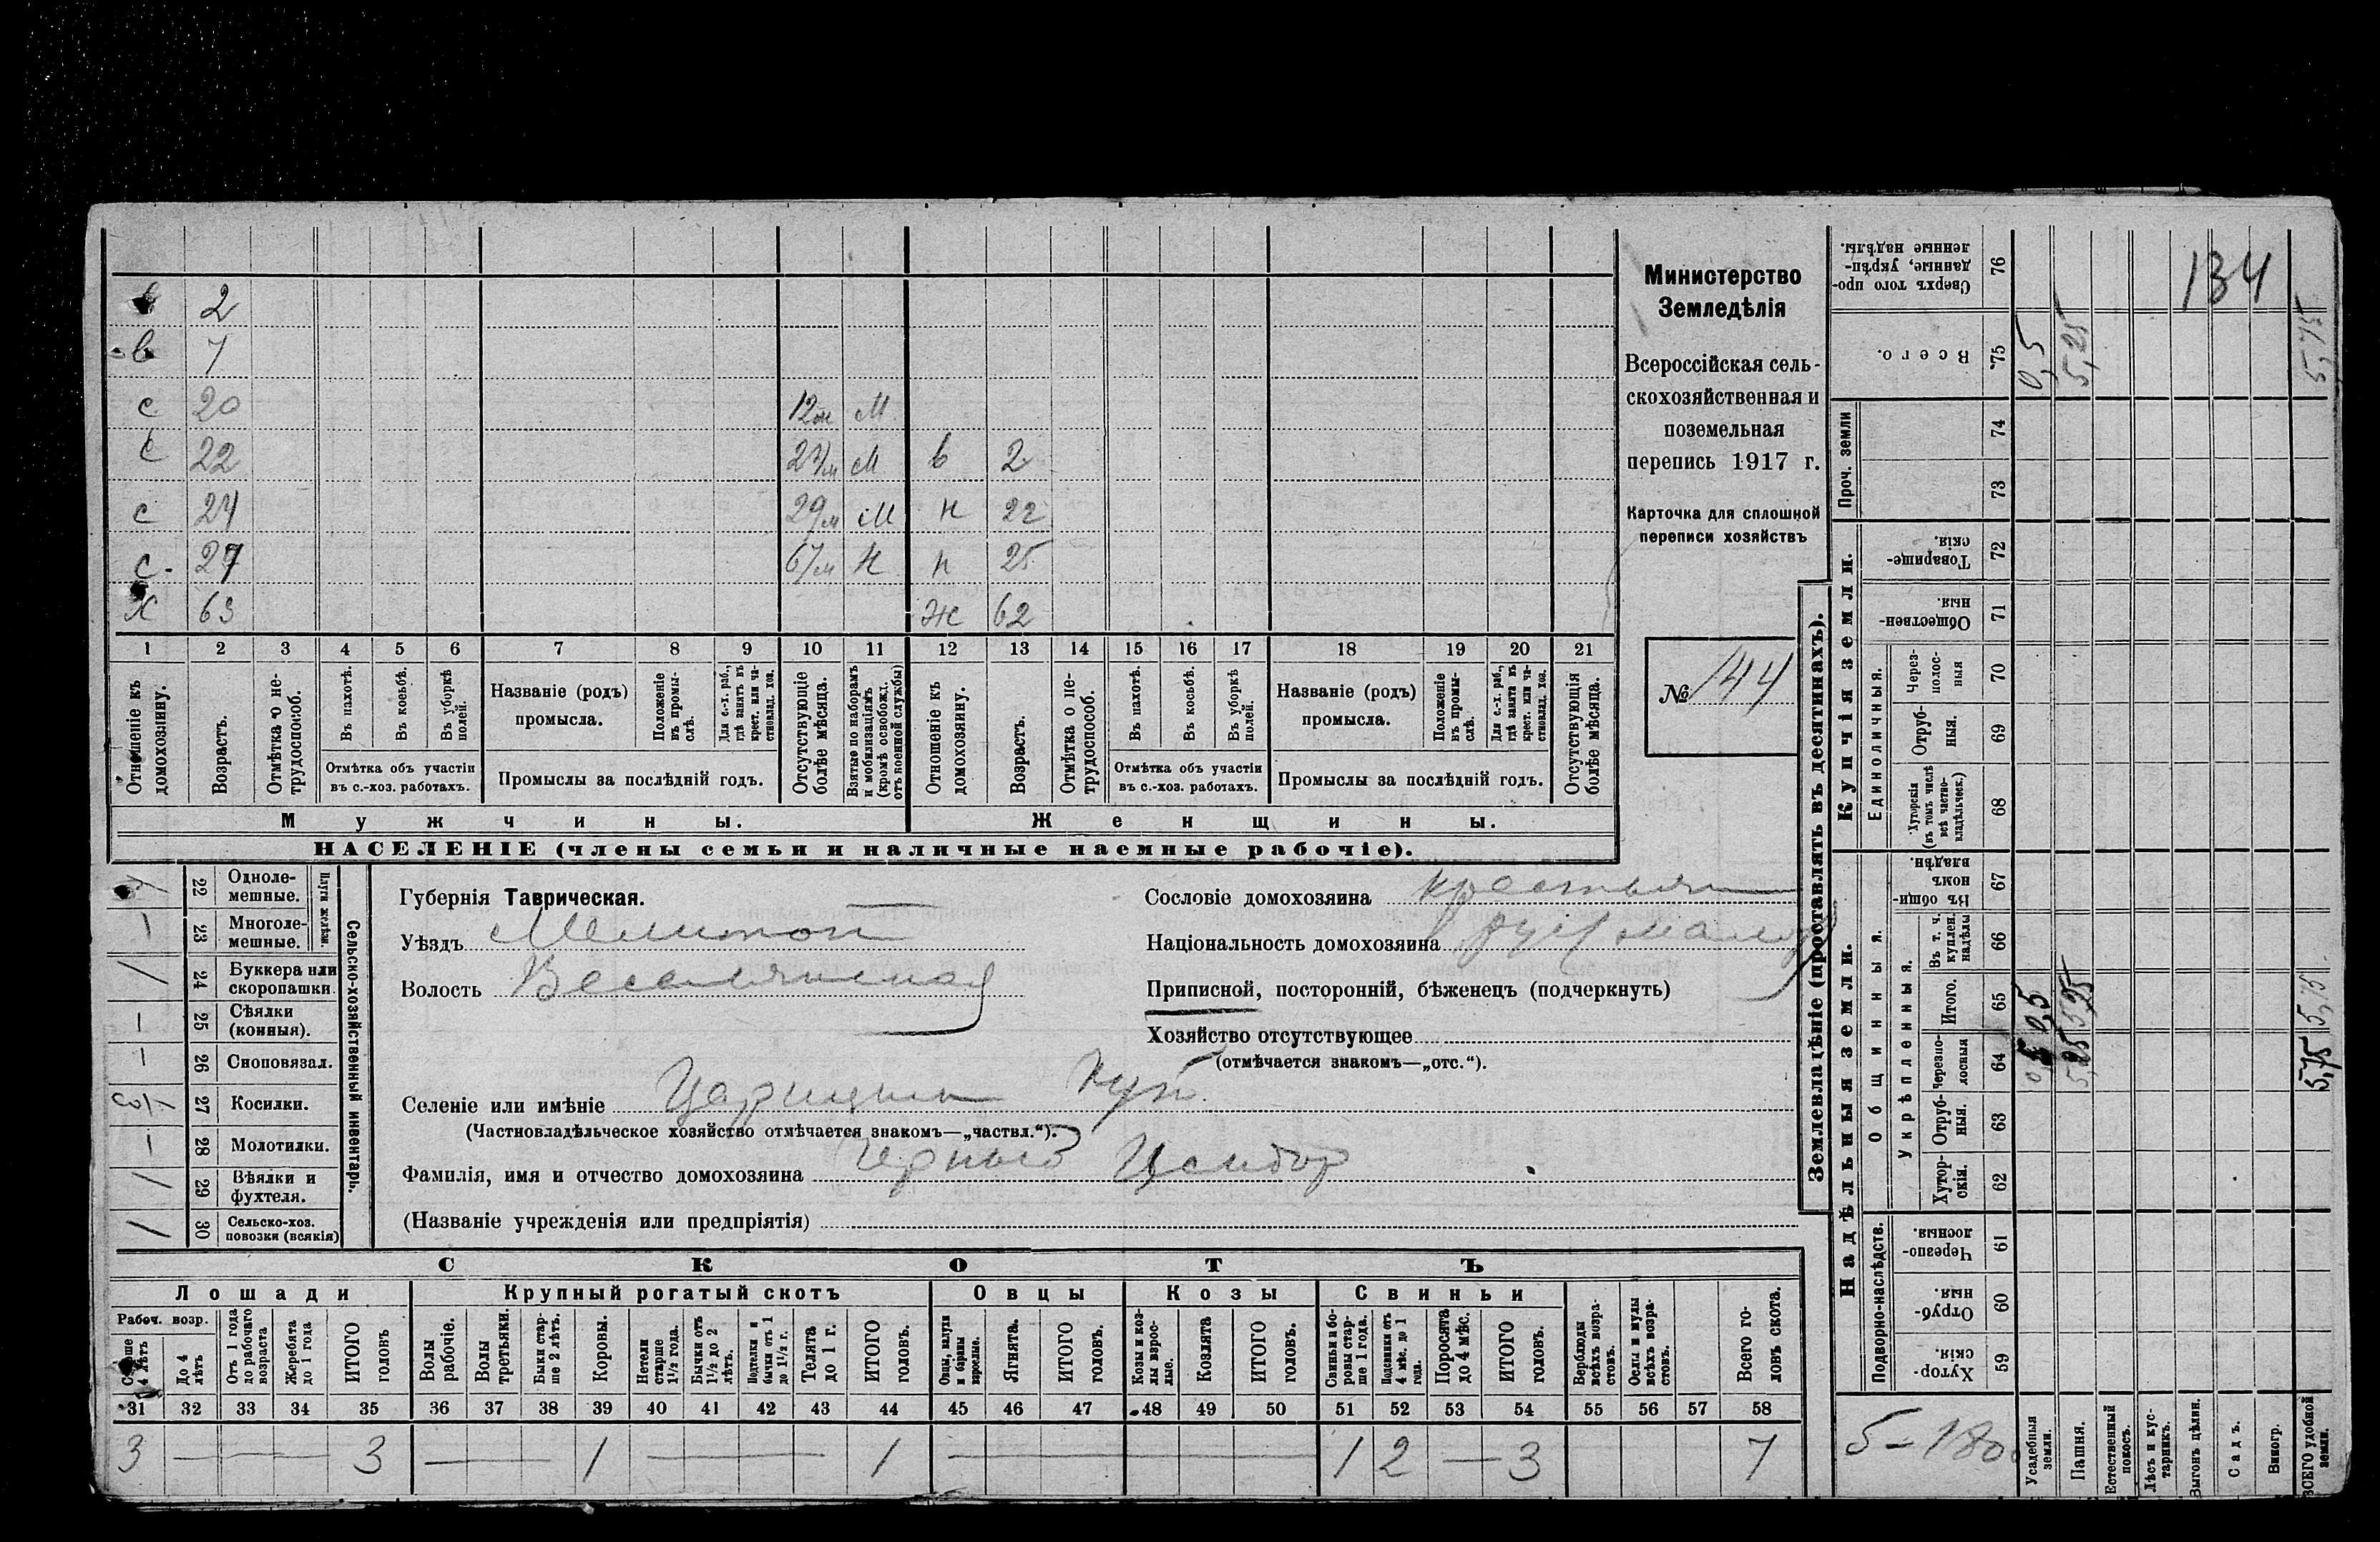 134
Министерство
Земледѣлія
Всероссійская сель-
скохозяйственная и
поземельная
перепись 1917 г.
Карточка для сплошной
переписи хозяйствъ
№ 144
2
в 7
с 20 12м М
с 22 М в 2
с 24 29/м М н 22
с. 27 н 25
Х 63 Ж 62
1 2 3 4 5 6 7 8 9 10 11 12 13 14 15 16 17 18 19 20 21
Отношеніе къ домохозяину.
Возрастъ.
Отмѣтка о не-трудоспособ.
Въ пахотѣ.
Въ косьбѣ.
Въ уборкѣ полей.
Отмѣтка объ участіи
въ с.-хоз. работахъ.
Названіе (родъ)
промысла.
Положеніе въ промы-слѣ.
Для с.-х. раб., гдѣ занятъ въ крест. или ча-стновлад. хоз.
Промыслы за послѣдній годъ.
Отсутствующіе болѣе мѣсяца.
Взятые по наборамъ и мобилизаціямъ (кромѣ освобожд. отъ военной службы)
Отношеніе къ домохозяину.
Возрастъ.
Отмѣтка о не-трудоспособ.
Въ пахотѣ.
Въ косьбѣ.
Въ уборкѣ полей.
Отмѣтка объ участіи
въ с.-хоз. работахъ.
Названіе (родъ)
промысла.
Положеніе въ промы-слѣ.
Для с.-х. раб., гдѣ занята въ крест. или ча-стновлад. хоз.
Промыслы за послѣдній годъ.
Отсутствующія болѣе мѣсяца.
Мужчины.
Женщины.
НАСЕЛЕНІЕ (члены семьи и наличные наемные рабочіе).
Сельско-хозяйственный инвентарь.
Плуги желѣзн.
22 Одноле-мешные.
— 23 Многоле-мешные.
/ 24 Буккера или скоропашки.
— 25 Сѣялки (конныя).
— 26 Сноповязал.
1/3 27 Косилки.
— 28 Молотилки.
/ 29 Вѣялки и фухтеля.
/ 30 Сельско-хоз. повозки (всякія)
Губернія Таврическая.
Уѣздъ Мелитоп
Волость Веселянская
Сословіе домохозяина крестьян
Національность домохозяина рус/малор
Приписной, посторонній, бѣженецъ (подчеркнуть)
Хозяйство отсутствующее
(отмѣчается знакомъ—„отс.“).
Селеніе или имѣніе Царицын Кут
(Частновладѣльческое хозяйство отмѣчается знакомъ—„частвл.“).
Фамилія, имя и отчество домохозяина
(Названіе учрежденія или предпріятія)
СКОТЪ
Лошади
Крупный рогатый скотъ
Овцы
Козы
Свиньи
Рабоч. возр.
Старше 4 лѣтъ
До 4 лѣтъ
Отъ 1 года до рабочаго возраста
Жеребята до 1 года
ИТОГО головъ
Волы рабочіе.
Волы третьяки.
Быки стар-ше 2 лѣтъ.
Коровы.
Нетели старше 1½ года.
Бычки отъ 1½ до 2 лѣтъ.
Подтелки и бычки отъ 1 до 1½ г.
Телята до 1 г.
ИТОГО головъ.
Овцы, валухи и бараны взрослые.
Ягнята.
ИТОГО головъ.
Козы и коз-лы взрос-лые.
Козлята
ИТОГО головъ.
Свиньи и бо-ровы стар-ше 1 года.
Подсвинки отъ 4 мѣс. до 1 года.
Поросята до 4 мѣс.
ИТОГО головъ.
Верблюды всѣхъ возра-стовъ.
Ослы и мулы всѣхъ возра-стовъ.
Всего го-ловъ скота.
31 32 33 34 35 36 37 38 39 40 41 42 43 44 45 46 47 48 49 50 51 52 53 54 55 56 57 58
3 — 3 — 1 — 1 — 1 2 — 3 7
Землевладѣніе (проставлять въ десятинахъ).
Надѣльныя земли.
Купчія земли.
Проч. земли
Подворно-наслѣдств.
Общинныя.
Укрѣпленныя.
Единоличныя.
Сверхъ того про-данные, укрѣп-ленные надѣлы. 76
Всего. 75 0,5 5,25 5,75
74
73
Товарище-скія. 72
Обществен-ныя. 71
Через-полос-ныя 70
Отруб-ныя. 69
Хуторскія (въ томъ числѣ всѣ частно-владѣльческ.) 68
Въ общин-номъ владѣн. 67
Въ т. ч. куплен. надѣлы 66
Итого. 65 0,5 5,25 5,75
Черезпо-лосныя 64 5,25 5,75
Отруб-ныя. 63
Хутор-скія. 62
Черезпо-лосныя. 61
Отруб-ныя. 60
Хутор-скія. 59
5-1800
Усадебныя земли.
Пашня.
Естественный покосъ.
Лѣсъ и кус-тарникъ.
Выгонъ цѣлин.
Садъ.
Виногр.
ВСЕГО удобной земли.